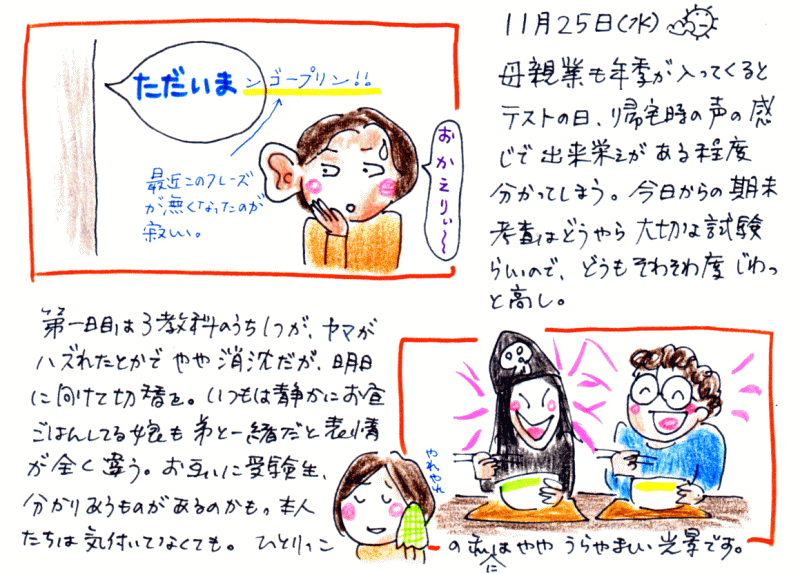 11月25日(水)
母親業も年季が入ってくると
テストの日、帰宅時の声の感
じで出来栄えがある程度
分かってしまう。今日からの期末
考査はどうやら大切な試験
らしいので、どうもそわそわ度じわっ
と高し。
ただいまンゴープリン!!
おかえりぃ〜〜
最近このフレーズ
が無くなったのが
寂しい。
第一日目は3教科のうち1つが、ヤマが
ハズれたとかでやや消沈だが、明日
に向けて切替を。いつもは静かにお昼
ごはんしてる娘も弟と一緒だと表情
が全く違う。お互いに受験生、
分かりあうものがあるのかも。本人
たちは気付いてなくても。ひとりっこ
の私にはややうらやましい光景です。
やれやれ